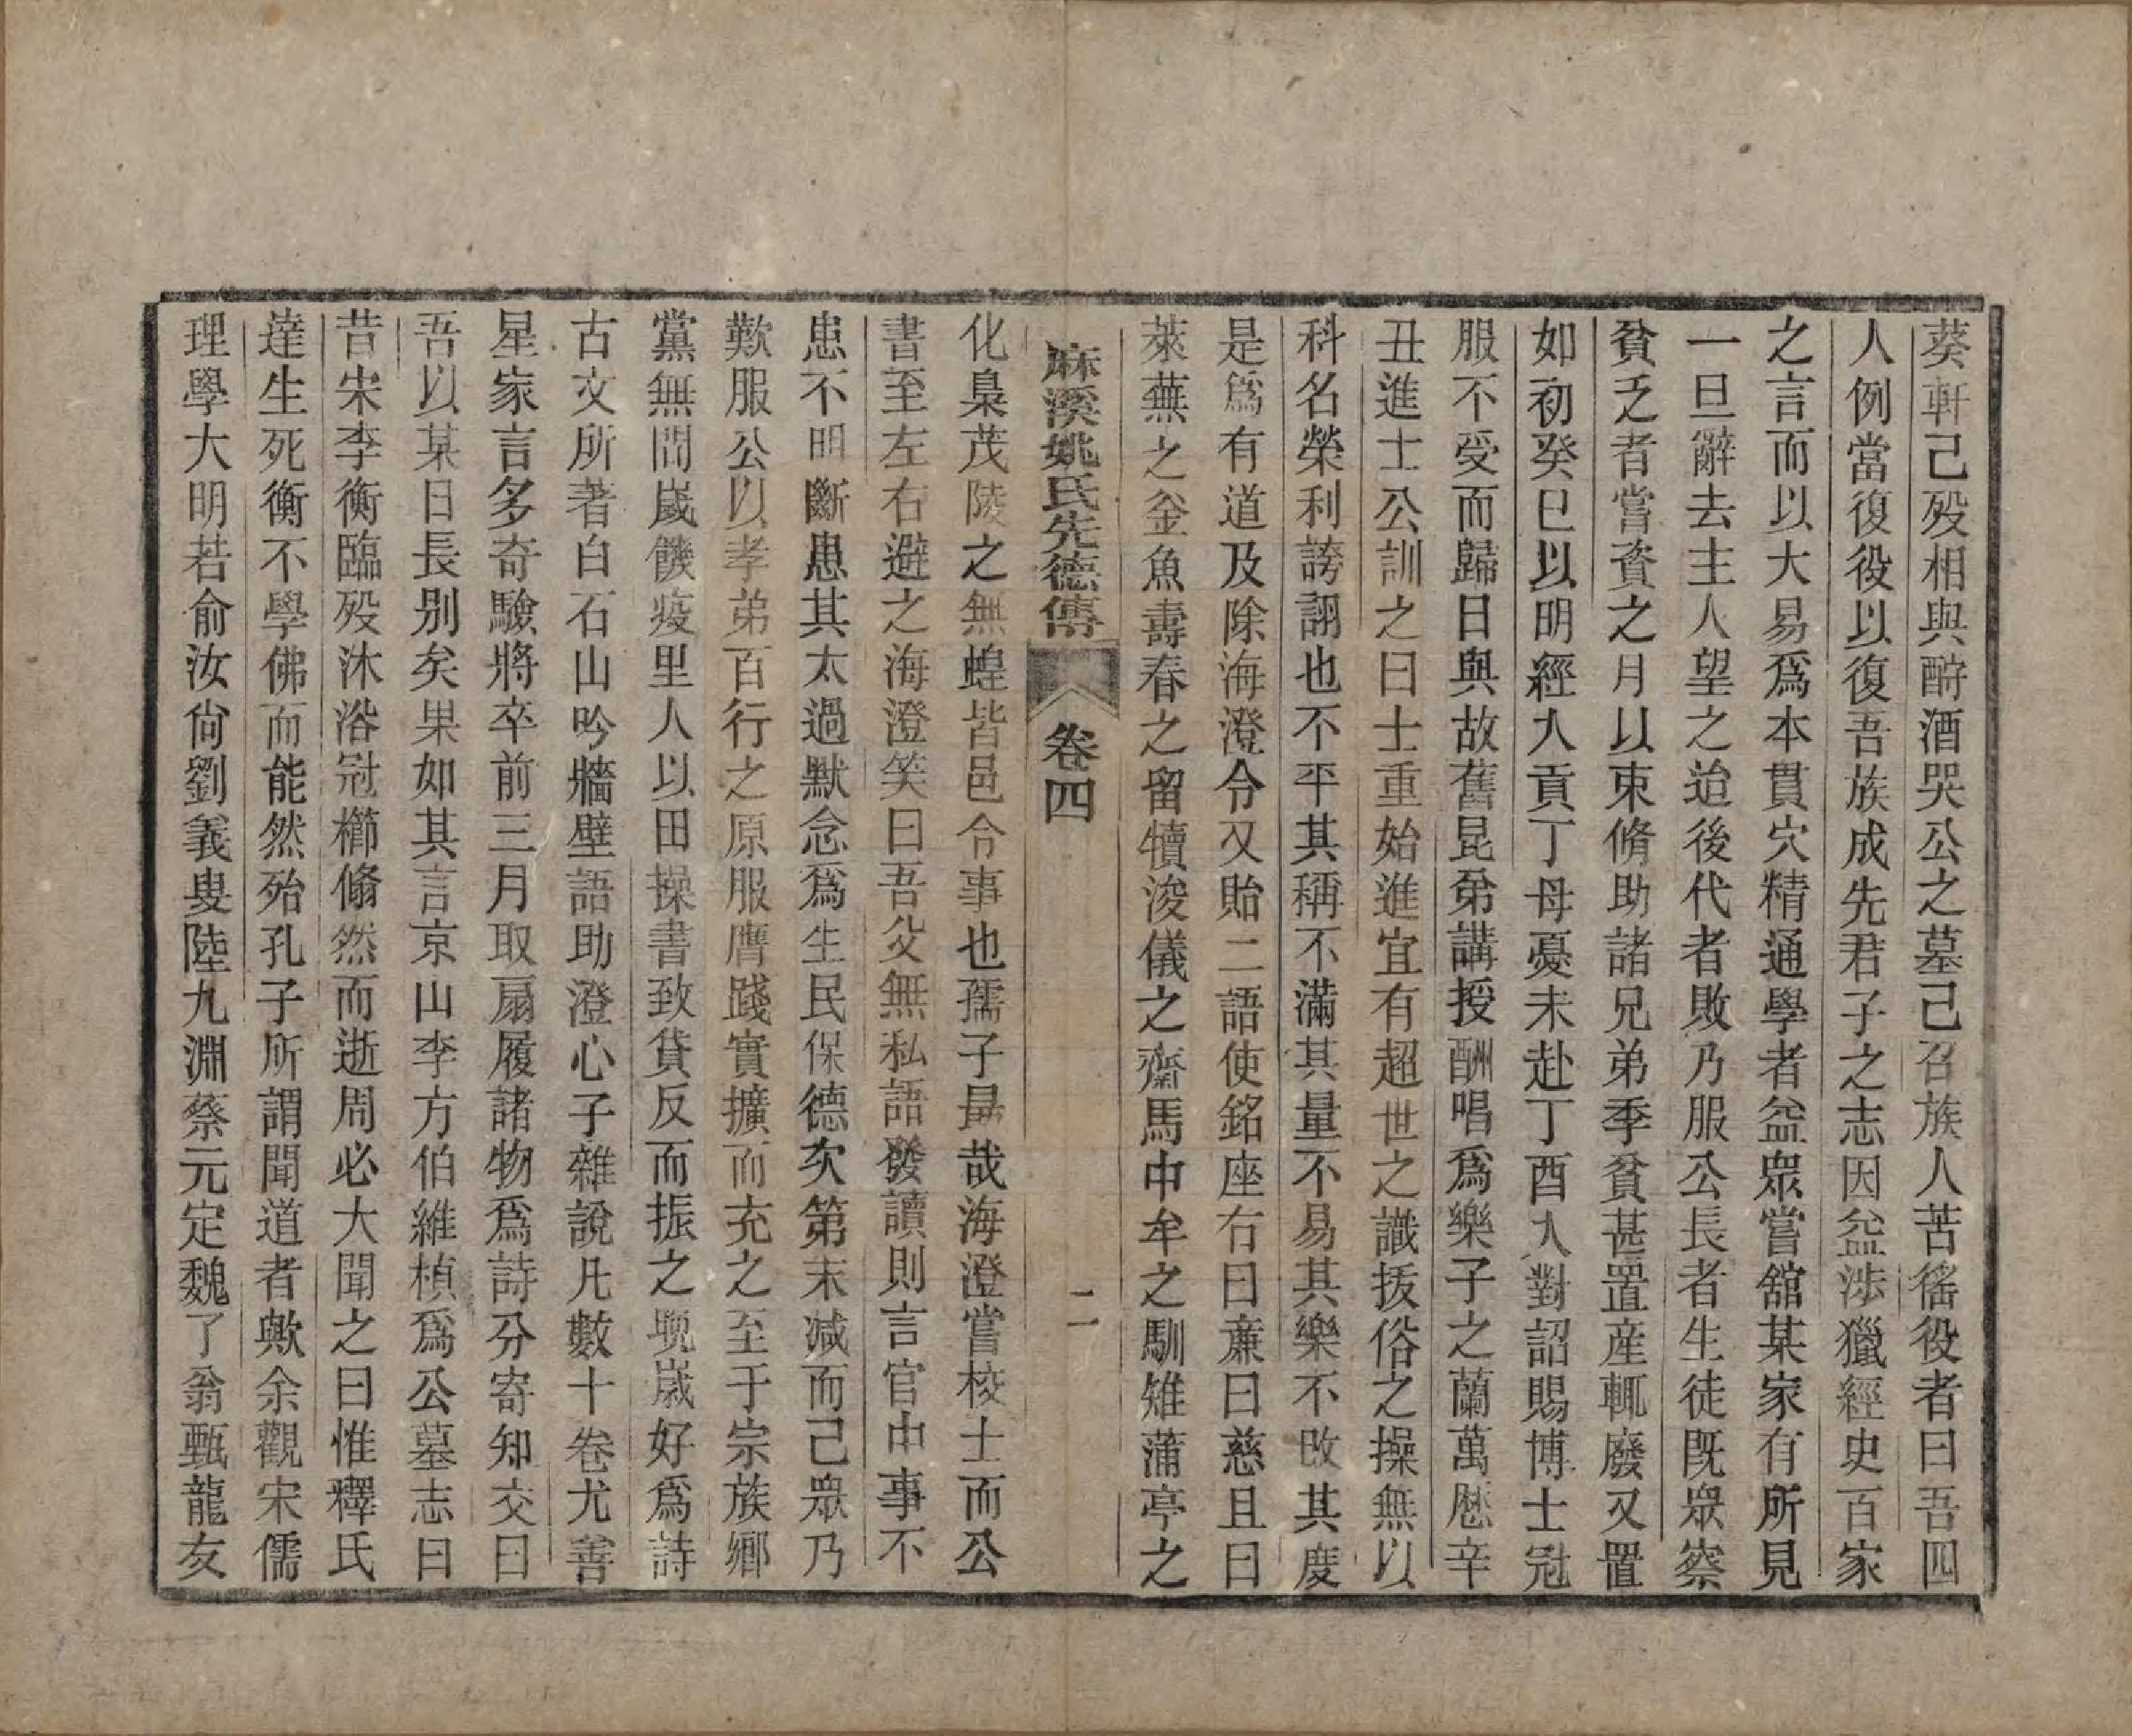 葵軒己殁相與酹酒哭公之墓己召族人苦徭役者曰吾四
人例當復役以復吾族成先君子之志因益涉獵經史百家
之言而以大易爲本貫穴精通學者益眾嘗舘某家有所見
一旦辭去主人望之迨後代者敗乃服公長者生徒既眾察
貧乏者嘗資之月以束脩助諸兄弟季貧甚置産輒廢又置
如初癸巳以明經入貢丁母憂未赴丁酉入對詔賜博士冠
服不受而歸日與故舊昆弟講授酬唱爲樂子之蘭萬厯辛
丑進士公訓之曰士重始進宜有超世之識拔俗之操無以
科名榮利誇詡也不平其稱不滿其量不易其樂不改其度
是爲有道及除海澄令又貽二語使銘座右曰亷曰慈且曰
萊蕪之釡魚壽春之留犢浚儀之齋馬中牟之馴雉蒲亭之
麻溪姚氏先德傳 卷四 二
化梟茂陵之無蝗皆邑令事也孺子勗哉海澄嘗校士而公
書至左右避之海澄笑曰吾父無私語發讀則言官中事不
患不明斷患其太過默念爲生民保德次第末減而己眾乃
歎服公以孝弟百行之原服膺踐實擴而充之至于宗族鄉
黨無間嵗饑疫里人以田操書致貸反而振之晩嵗好爲詩
古文所著白石山吟牆壁語助澄心子雜說凡數十卷尤善
星家言多奇驗將卒前三月取扇履諸物爲詩分寄知交曰
吾以某日長别矣果如其言京山李方伯維楨爲公墓志曰
昔宋李衡臨殁沐浴冠櫛翛然而逝周必大聞之曰惟釋氏
達生死衡不學佛而能然殆孔子所謂聞道者歟余觀宋儒
理學大明若俞汝尙劉義叟陸九淵蔡元定魏了翁甄龍友